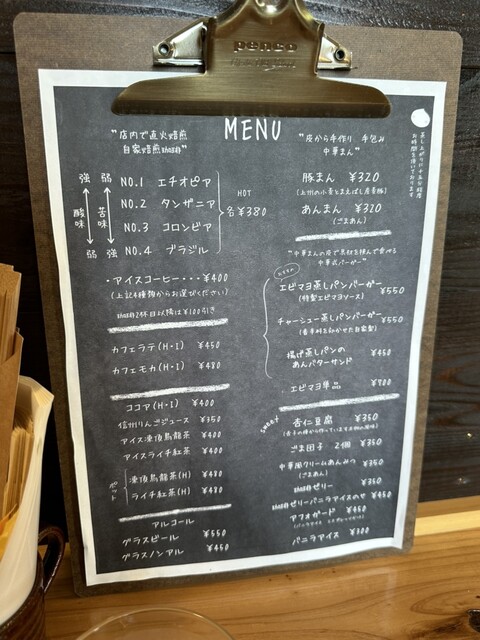 penco
MENU
"店内で直火焙煎
自家焙煎coffee"
強 弱
酸味 苦味
弱 強
NO.1 エチオピア
NO.2 タンザニア
NO.3 コロンビア
NO.4 ブラジル
HOT
各¥380
・アイスコーヒー・・・¥400
(上記4種類からお選びください)
coffee2杯目以降は¥100引き
カフェラテ(H・I) ¥450
カフェモカ(H・I) ¥480
ココア(H・I) ¥400
信州りんごジュース ¥350
アイス凍頂烏龍茶 ¥400
アイスライチ紅茶 ¥400
ポット
凍頂烏龍茶(H) ¥480
ライチ紅茶(H) ¥480
アルコール
グラスビール ¥550
グラスノンアル ¥450
"皮から手作り 手包み
中華まん"
蒸し上がりに十五分程度
お時間を頂いております
豚まん ¥320
(上州の小麦とまえばし産麦豚)
あんまん ¥320
(ごまあん)
"中華まんの皮で具材を挟んで食べる
中華式バーガー"
おすすめ
エビマヨ蒸しパンバーガー ¥550
(特製エビマヨソース)
チャーシュー蒸しパンバーガー ¥550
(香辛料を効かせた自家製)
揚げ蒸しパンの
あんバターサンド ¥450
エビマヨ単品 ¥700
sweets
杏仁豆腐 ¥350
(杏子の種から作っています本物の風味)
ごま団子 2個 ¥350
中華風クリームあんみつ ¥350
(ごまあん)
coffeeゼリー ¥350
coffeeゼリーバニラアイスのせ ¥450
アフォガード ¥450
バニラアイス ¥300